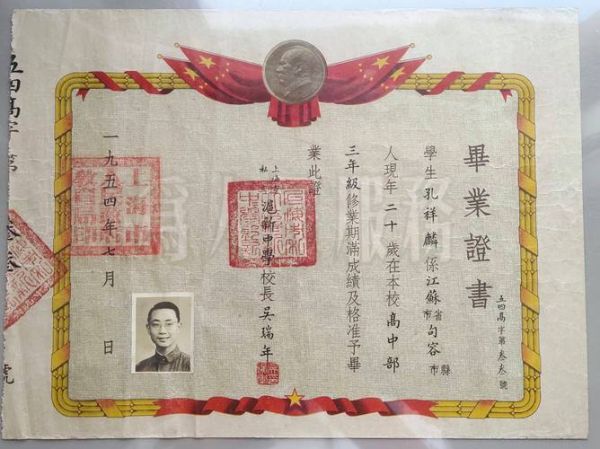 畢業證書
五四高字第叁叁號
學生孔祥麟係江蘇省市句容縣市
人現年二十歲在本校高中部
三年級修業期滿成績及格准予畢
業此證
上海市私立滬新中學校長吳瑞年
一九五四年七月 日
五四高字第
叁叁
號